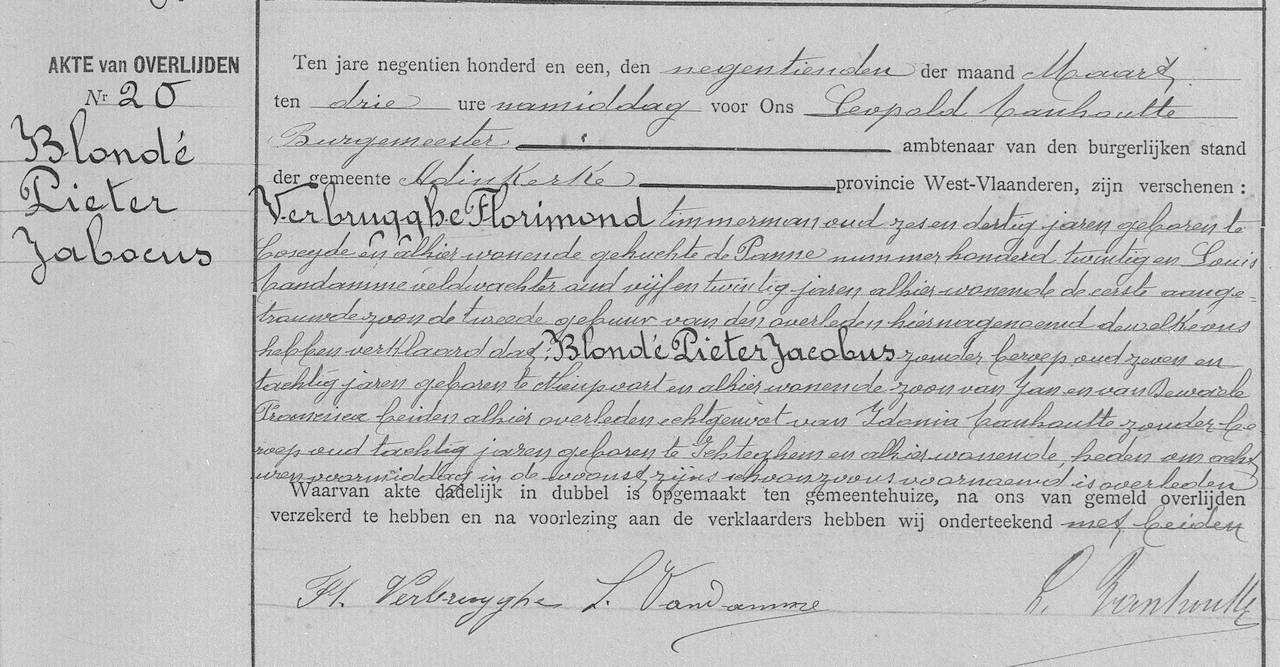 AKTE van OVERLIJDEN
Nr 20
Blondé
Pieter
Jabocus
Ten jare negentien honderd en een, den negentienden der maand Maart
ten drie ure namiddag voor Ons Leopold Vanhoutte
Burgemeester ambtenaar van den burgerlijken stand
der gemeente Adinkerke provincie West-Vlaanderen, zijn verschenen :
Verbrugghe Florimond timmerman oud zes en dertig jaren geboren te
Coxyde en alhier wonende gehuchte de Panne nummer honderd twintig en Louis
Vandamme veldwachter oud vijf en twintig jaren alhier wonende de eerste aange-
trouwde zoon de tweede gebuur van den overleden hiernagenoemd dewelke ons
hebben verklaard dat Blondé Pieter Jacobus zonder beroep oud zeven en
tachtig jaren geboren te Nieupoort en alhier wonende zoon van Jan en van Dewaele
Francisca beiden alhier overleden echtgenoot van Idonia Vanhoutte zonder be
roep oud tachtig jaren geboren te Ichteghem en alhier wonende, heden om acht
uren voormiddag in de woonst zijns schoonzoons voornoemd is overleden
Waarvan akte dadelijk in dubbel is opgemaakt ten gemeentehuize, na ons van gemeld overlijden
verzekerd te hebben en na voorlezing aan de verklaarders hebben wij onderteekend met beiden
Fl. Verbrugghe L. Vandamme L. Vanhoutte